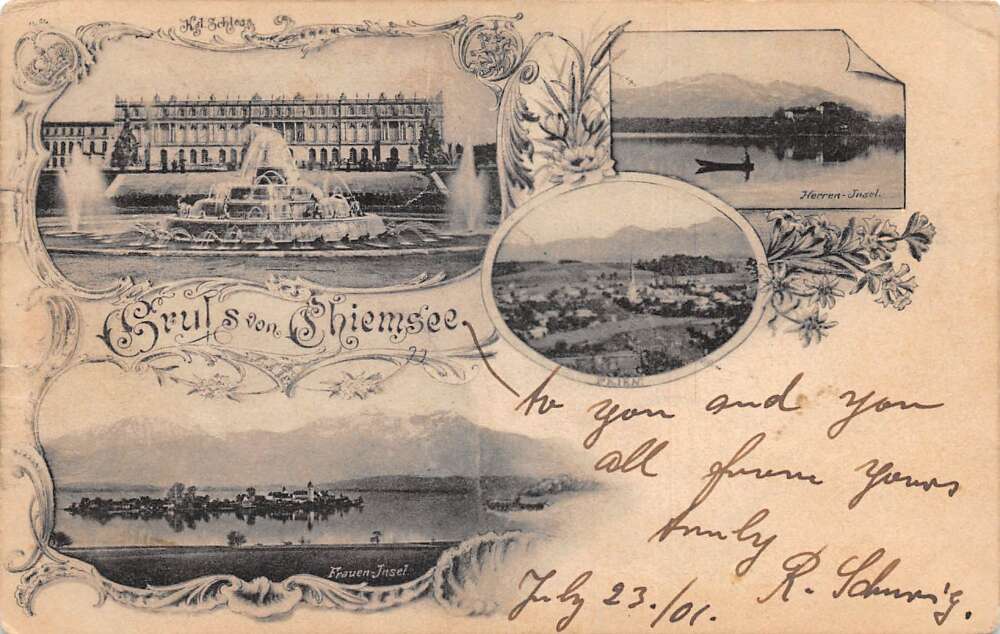 Kgl. Schloss
Herren-Insel.
PRIEN.
Gruss von Chiemsee
Frauen-Insel.
to you and you
all from yours
truly
R. Schurig.
July 23./01.